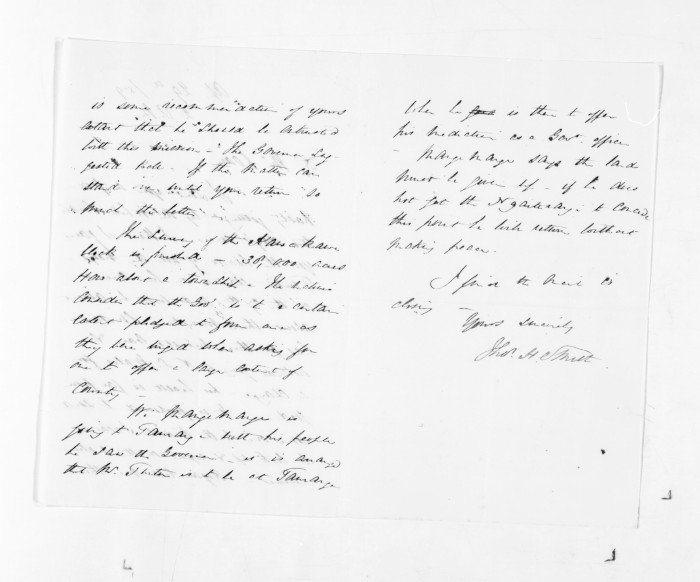 is some recommendation of yours
extent "that he should be entrusted
with this mission -" The Governor sug-
gested this - If the matter can
stand over until your return "so
much the better"
The Survey of the
block is finished - 38,000 acres
How about a township - The natives
consider that the Govt is to a certain
extent pledged to form one as
they were urged when asking for
one to offer a large extent of
Country -
Wm Mangemange is
going to Tauranga with his people
he saw the Governor it is arranged
that Mr is to be at Tauranga
when he is there to offer
his mediation as a Govt officer
- Mangemange says the land
must be given up - if he does
not get the Ngaiterangi to concede
this point he will return without
making peace.
I find the mail is
closing -
Yours Sincerely
Thos. H Smith